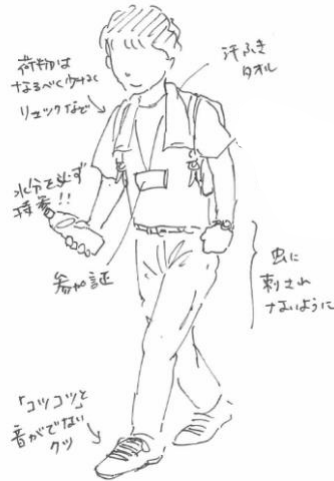 荷物は
なるべく少なく
リュックなど
汗ふき
タオル
水分を必ず
持参!!
参加証
虫に
刺され
ないように
「コツコツと」
音がでない
クツ